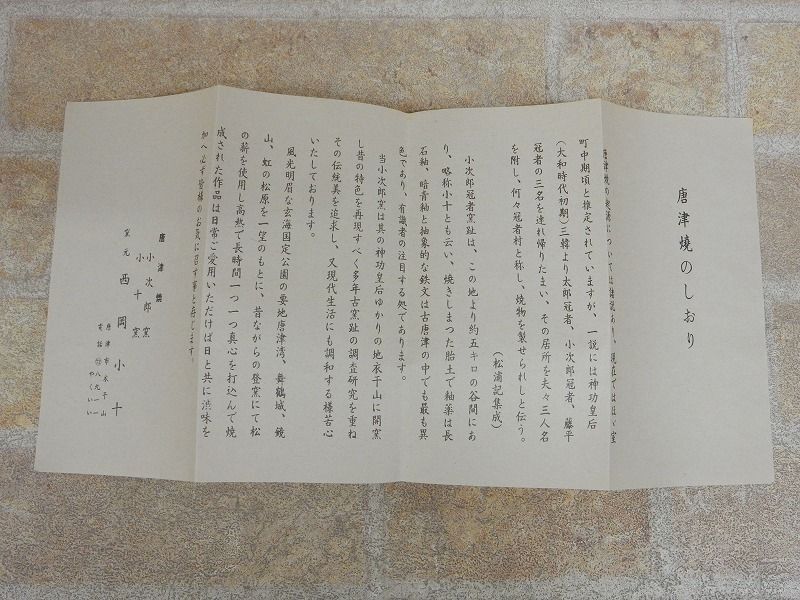 唐津燒のしおり
唐津焼の起源については諸説あり、現在ではほぼ室
町中期頃と推定されていますが、一説には神功皇后
（大和時代初期）三韓より太郎冠者、小次郎冠者、藤平
冠者の三名を連れ帰りたまい、その居所を夫々三人名
を附し、何々冠者村と称し、焼物を製せられしと伝う。
（松浦記集成）
小次郎冠者窯趾は、この地より約五キロの谷間にあ
り、略称小十とも云い、焼きしまつた胎土で釉薬は長
石釉、暗青釉と抽象的な鉄文は古唐津の中でも最も異
色であり、有識者の注目する処であります。
当小次郎窯は其の神功皇后ゆかりの地衣干山に開窯
し昔の特色を再現すべく多年古窯趾の調査研究を重ね
その伝統美を追求し、又現代生活にも調和する様苦心
いたしております。
風光明眉な玄海国定公園の要地唐津湾、舞鶴城、鏡
山、虹の松原を一望のもとに、昔ながらの登窯にて松
の薪を使用し高熱で長時間一つ一つ真心を打込んで焼
成された作品は日常ご愛用いただけば日と共に渋味を
加へ必ず皆様のお気に召す事と存じます。
唐津燒
小次郎窯
小十窯
窯元 西岡小十
唐津市衣干山
電話